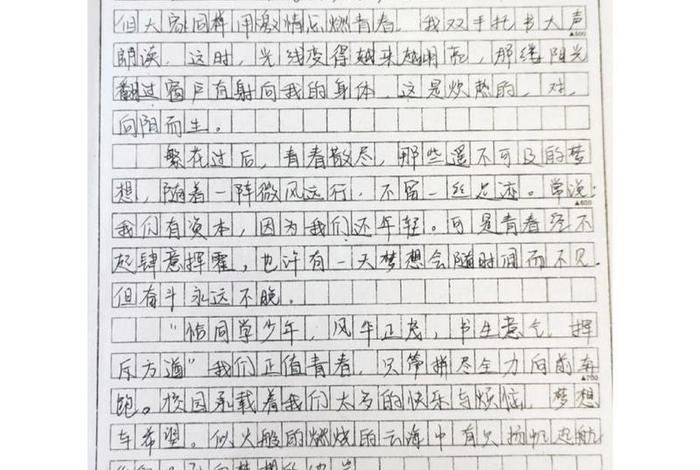 但大家同样用激情点燃青春。我双手托书大声
▲500
朗读。这时，光线变得越来越明亮，那缕阳光
翻过窗户直射向我的身体，这是炽热的，对，
向阳而生。
繁花过后，青春散尽，那些遥不可及的梦
想，随着一阵微风远行，不留一丝点迹。常说：
▲600
我们有资本，因为我们还年轻。可是青春经不
起肆意挥霍，也许有一天梦想会随时间而不见，
但奋斗永远不晚。
“恰同学少年，风华正茂，书生意气，挥
斥方遒”我们正值青春，只管拼尽全力向前奔
▲700
跑。校园承载着我们太多的快乐与烦恼，梦想
与希望。似火般的燃烧的云海中有只扬帆起航